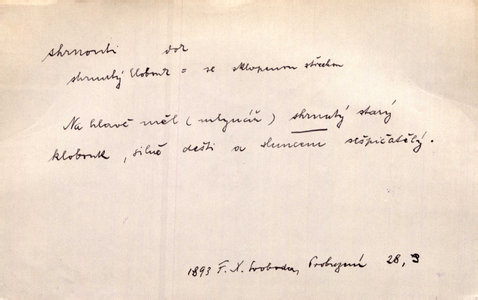 shrnouti dok
shrnutý klobouk = se sklopenou střechou
Na hlavě měl (mlynář) shrnutý starý
klobouk, silně dešti a sluncem sešpičatělý.
1893 F. X. Svoboda, 28, 3